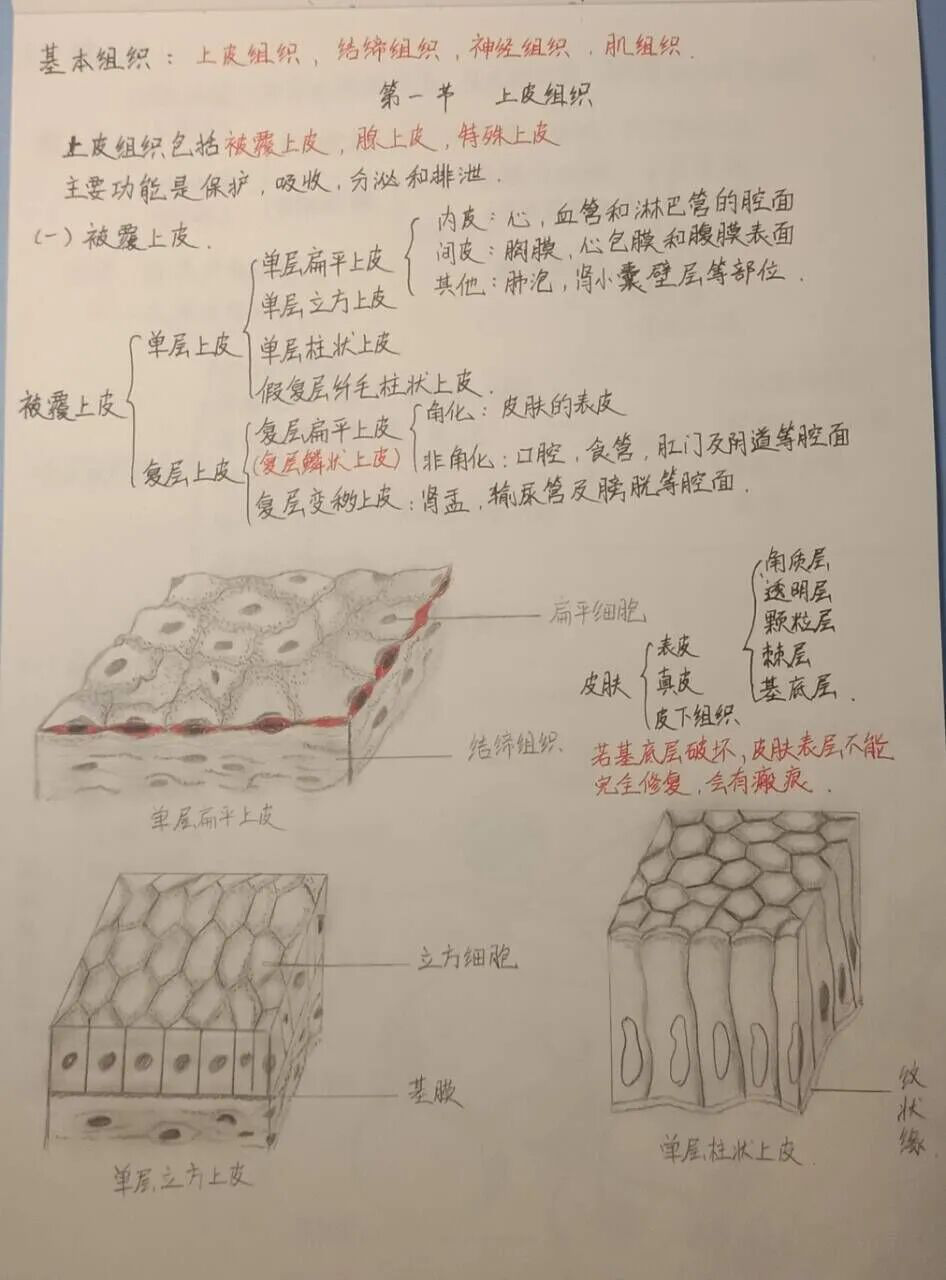 基本组织：上皮组织，结缔组织，神经组织，肌组织.
第一节 上皮组织
上皮组织包括被覆上皮，腺上皮，特殊上皮
主要功能是保护，吸收，分泌和排泄.
(一) 被覆上皮.
被覆上皮
单层上皮
单层扁平上皮
内皮：心，血管和淋巴管的腔面
间皮：胸膜，心包膜和腹膜表面
其他：肺泡，肾小囊壁层等部位.
单层立方上皮
单层柱状上皮
假复层纤毛柱状上皮.
复层上皮
复层扁平上皮
(复层鳞状上皮)
角化：皮肤的表皮
非角化：口腔，食管，肛门及阴道等腔面
复层变移上皮：肾盂，输尿管及膀胱等腔面.
扁平细胞
结缔组织
单层扁平上皮
皮肤
表皮
真皮
皮下组织
角质层
透明层
颗粒层
棘层
基底层.
若基底层破坏，皮肤表层不能
完全修复，会有瘢痕.
立方细胞
基膜
单层立方上皮
纹状缘
单层柱状上皮.